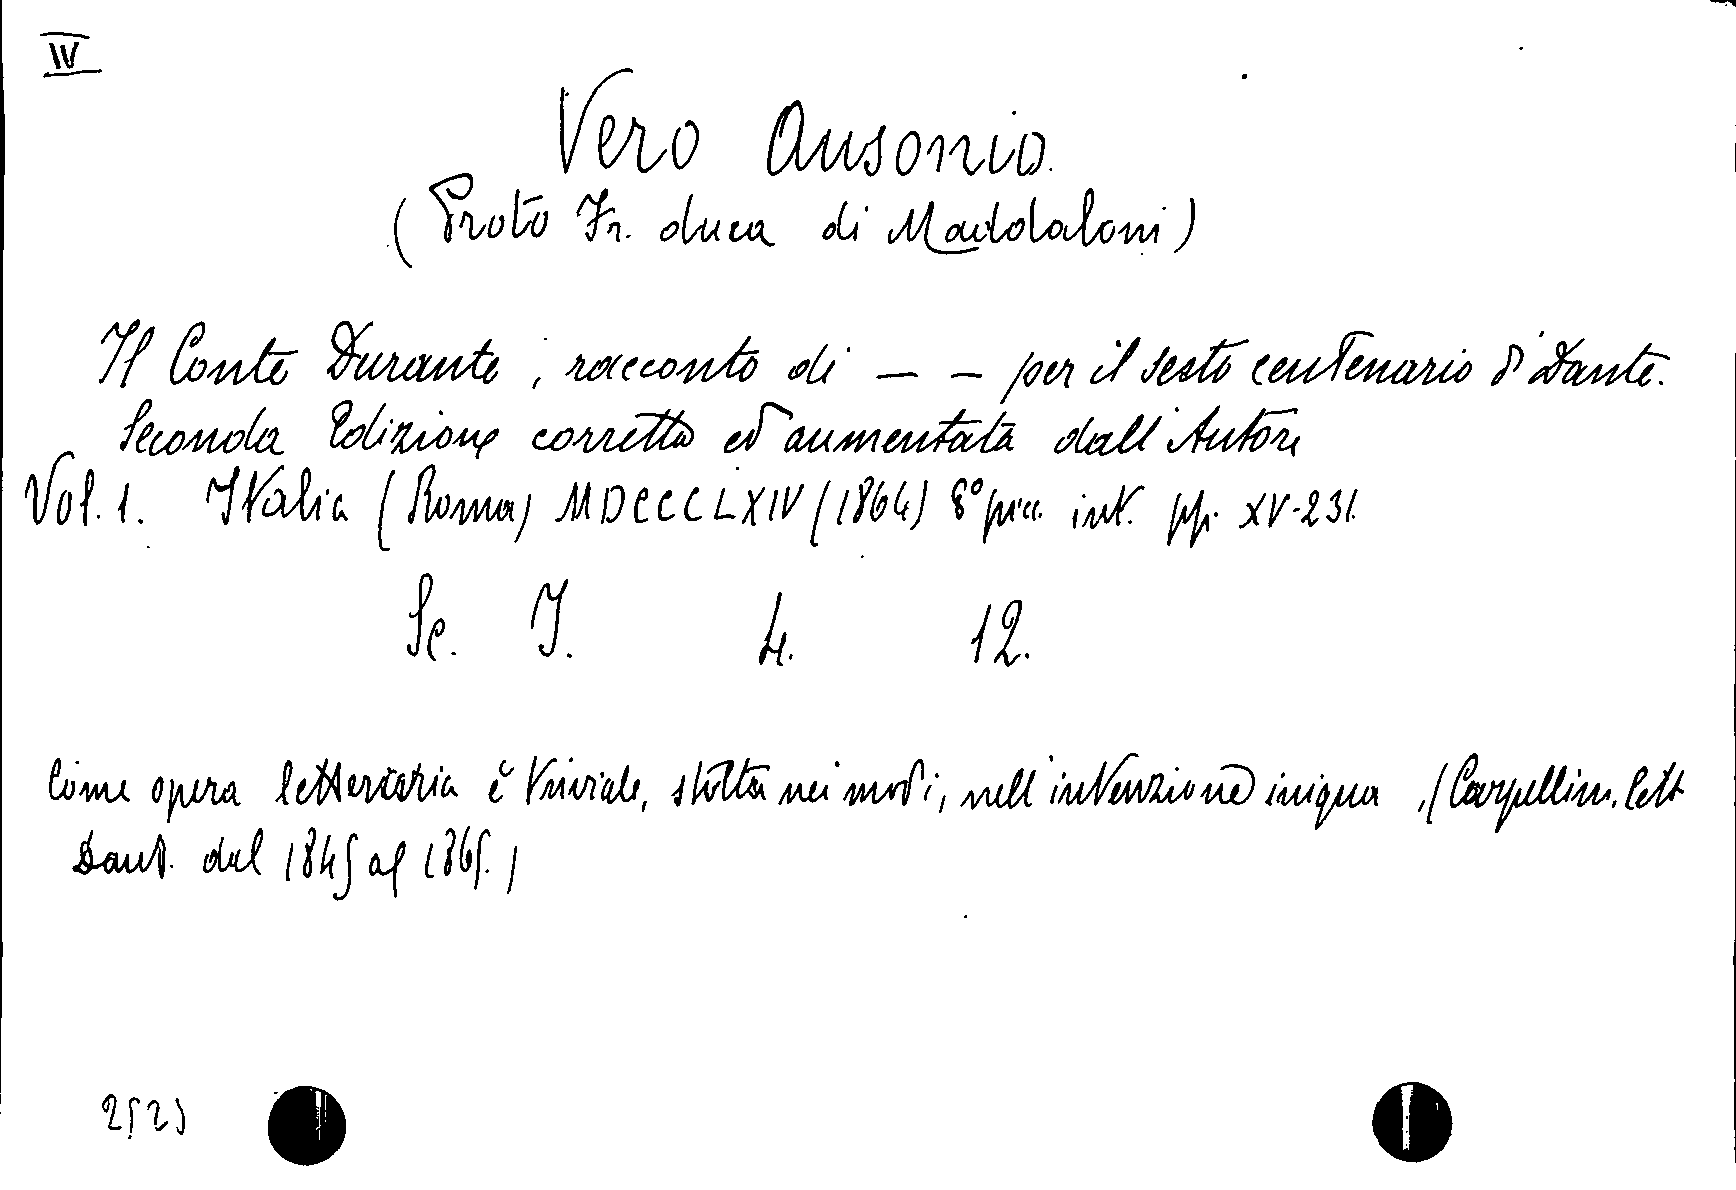 IV
Vero Ausonio.
(Proto Fr. duca di Maddaloni)
Il Conte Durante, racconto di — — per il sesto centenario di Dante.
Seconda Edizione corretta ed aumentata dall'Autore
Vol. 1. Italia (Roma) MDCCCLXIV (1864) 8° picc. int. pp. XV-231.
Sc. I. 4. 12.
Come opera letteraria è triviale, stolta nei modi, nell'invenzione iniqua. (Carpellini, lett
Dant. dal 1845 al 1865.)
2525